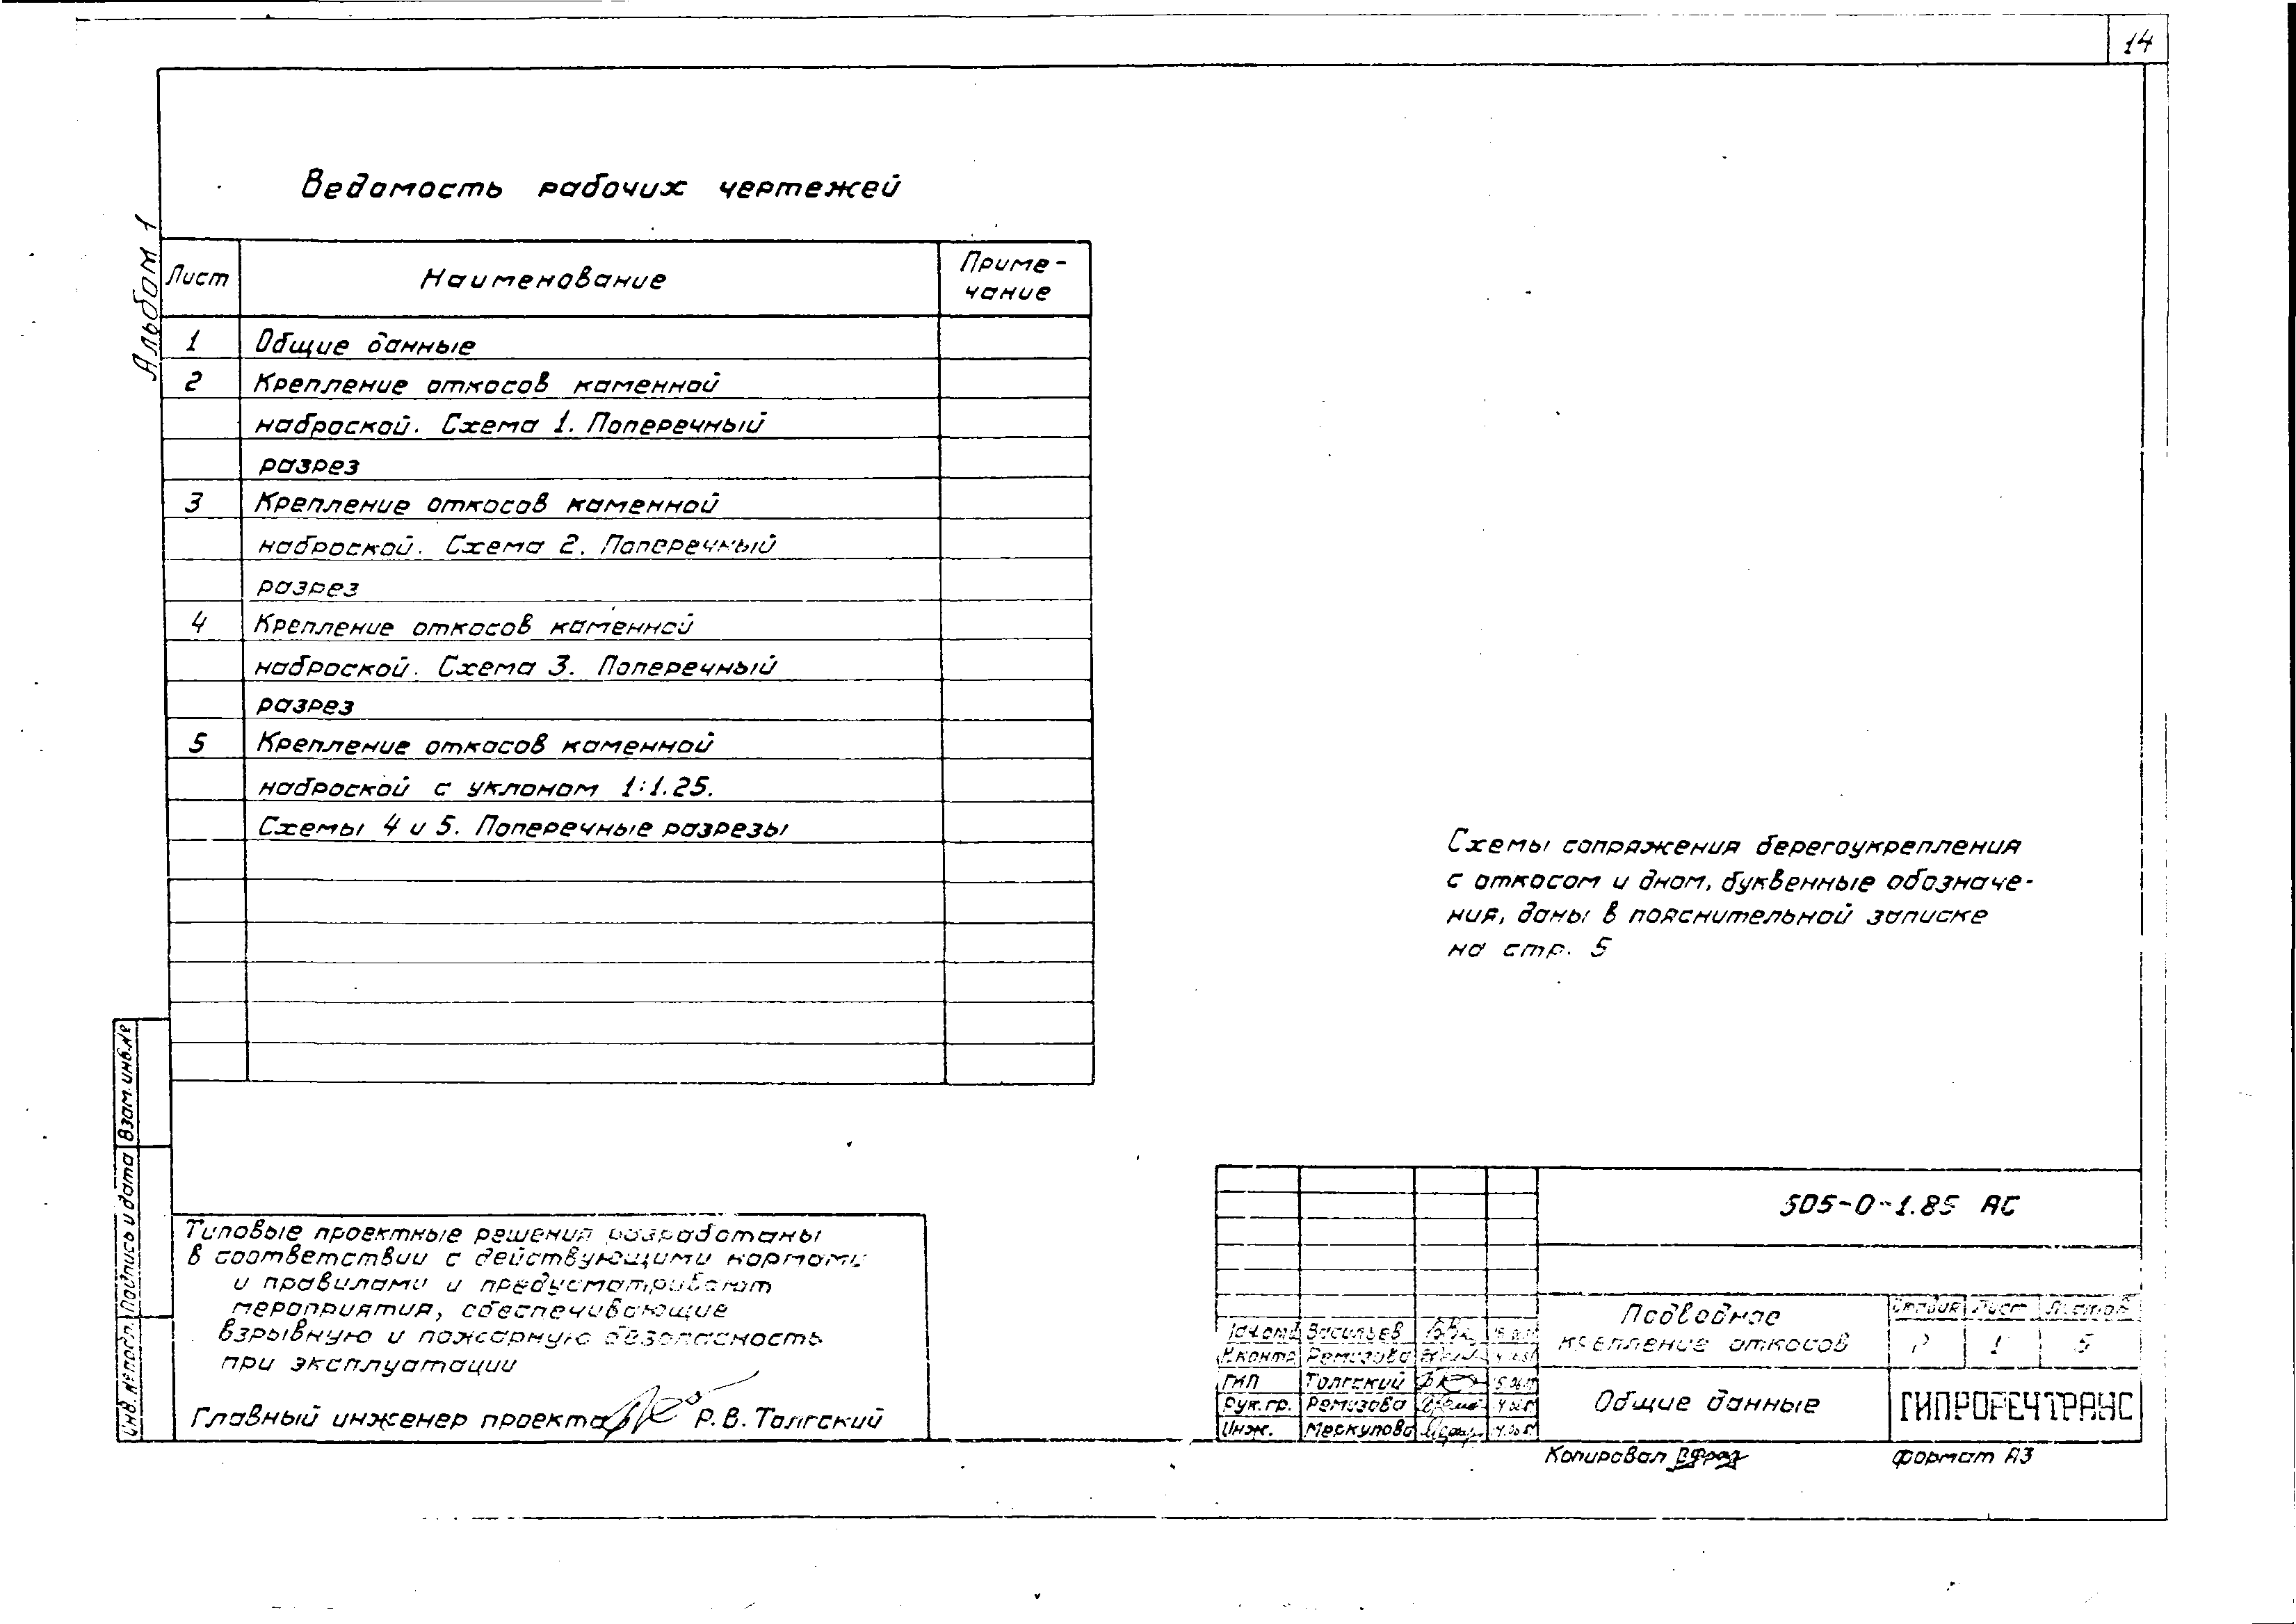 14
Альбом 1
Ведомость рабочих чертежей
Лист Наименование Приме-
чание
1 Общие данные
2 Крепление откосов каменной
наброской. Схема 1. Поперечный
разрез
3 Крепление откосов каменной
наброской. Схема 2. Поперечный
разрез
4 Крепление откосов каменной
наброской. Схема 3. Поперечный
разрез
5 Крепление откосов каменной
наброской с уклоном 1:1.25.
Схемы 4 и 5. Поперечные разрезы
Схемы сопряжения берегоукрепления
с откосом и дном, буквенные обозначе-
ния, даны в пояснительной записке
на стр. 5
Взам. инв. №
Подпись и дата
Инв. № подл.
Типовые проектные решения разработаны
в соответствии с действующими нормами
и правилами и предусматривают
мероприятия, обеспечивающие
взрывную и пожарную безопасность
при эксплуатации
Главный инженер проекта Р. В. Толгский
505-0-1.85 АС
Подводное
крепление откосов
Стадия Лист Листов
Р 1 5
Нач.отд Васильев
Н.контр Ремизова
ГИП Толгский
Рук. гр. Ремизова
Инж. Меркулова
Общие данные
ГИПРОРЕЧТРАНС
Копировал
формат А3